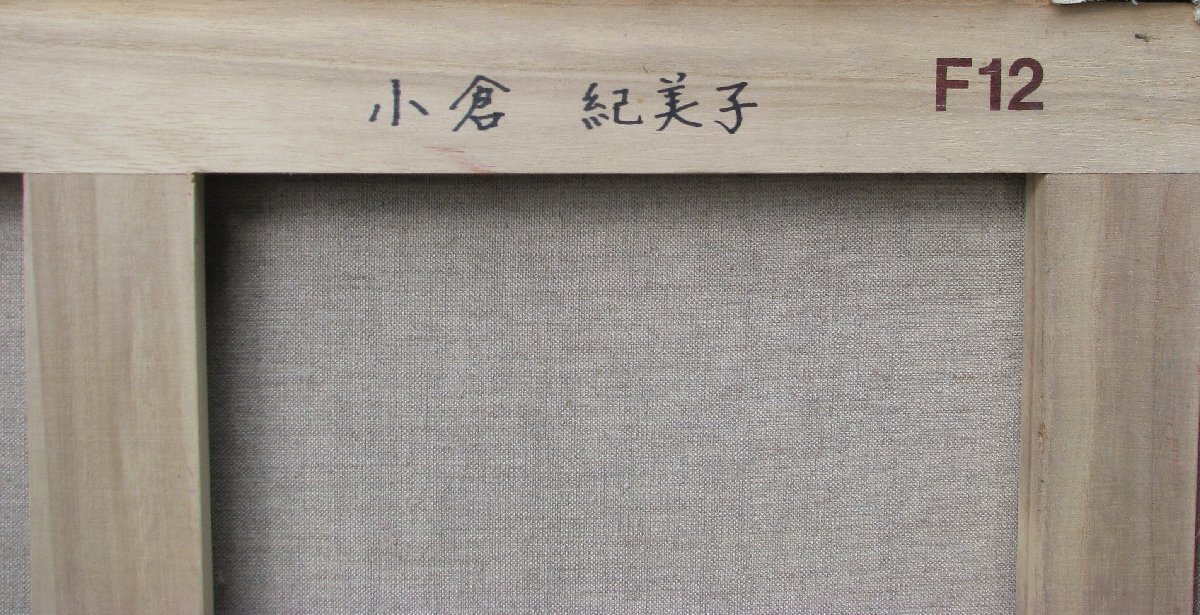 小倉 紀美子 F12